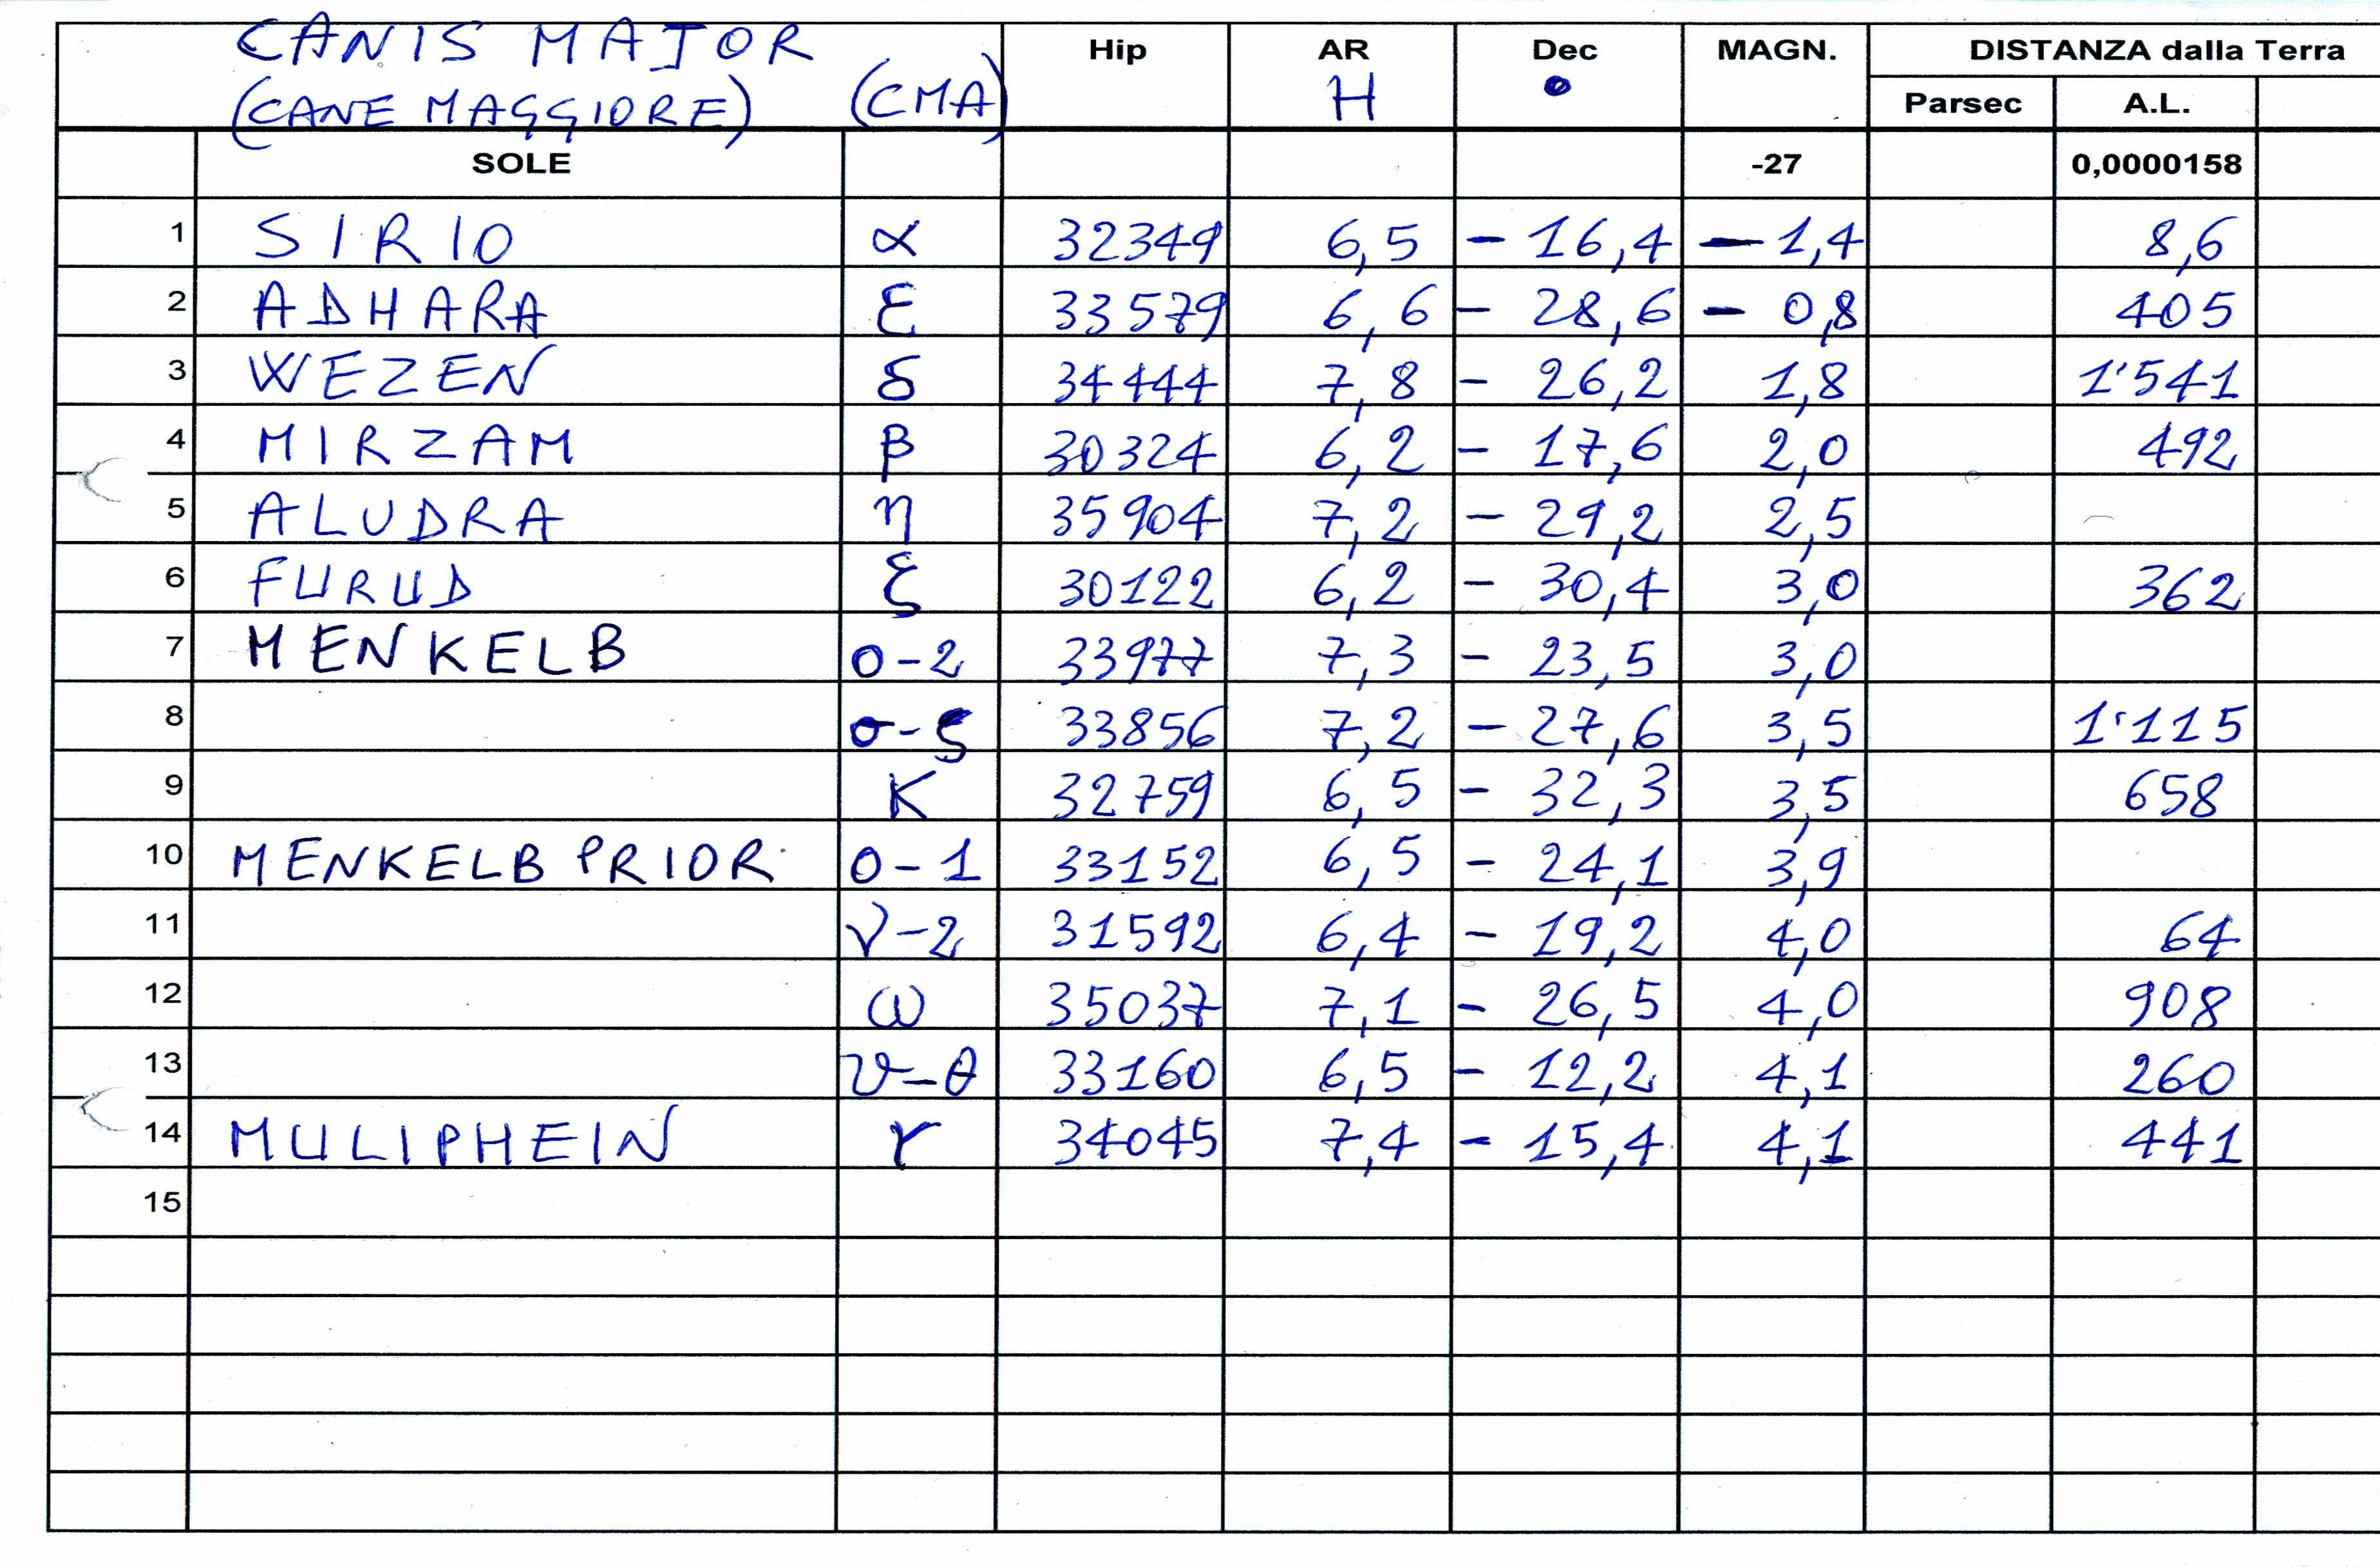 CANIS MAJOR Hip AR Dec MAGN. DISTANZA dalla Terra
(CANE MAGGIORE) (CMA) H ° Parsec A.L.
SOLE -27 0,0000158
1 SIRIO α 32349 6,5 - 16,4 - 1,4 8,6
2 ADHARA ε 33579 6,6 - 28,6 - 0,8 405
3 WEZEN δ 34444 7,8 - 26,2 1,8 1'541
4 MIRZAM β 30324 6,2 - 17,6 2,0 492
5 ALUDRA η 35904 7,2 - 29,2 2,5
6 FURUD ξ 30122 6,2 - 30,4 3,0 362
7 MENKELB o-2 33977 7,3 - 23,5 3,0
8 σ-ς 33856 7,2 - 27,6 3,5 1'115
9 K 32759 6,5 - 32,3 3,5 658
10 MENKELB PRIOR o-1 33152 6,5 - 24,1 3,9
11 ν-2 31592 6,4 - 19,2 4,0 64
12 ω 35037 7,1 - 26,5 4,0 908
13 ϑ-θ 33160 6,5 - 12,2 4,1 260
14 MULIPHEIN γ 34045 7,4 - 15,4 4,1 441
15